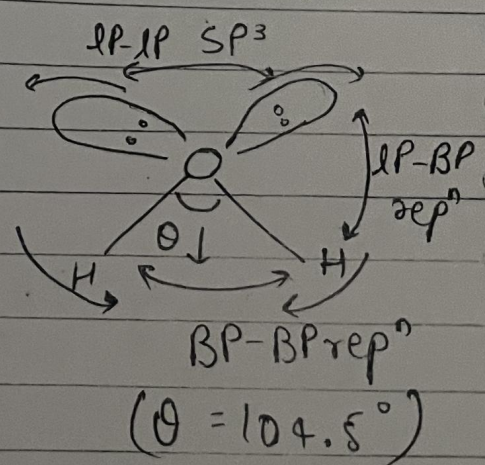 lP-lP SP³
lP-BP
repⁿ
O
θ↓
H H
BP-BP repⁿ
(θ = 104.5°)